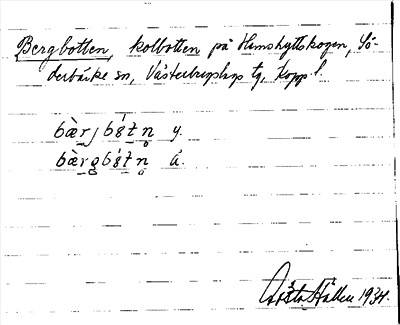 Bergbotten, kolbotten på Hemshyttskogen, Sö-
derbärke sn, Västerbergslags tg, Kopp. l.
bæ̀rj bót n̥ y.
bæ̀rgbót n̥ ä.
Gösta Hållen 1934.